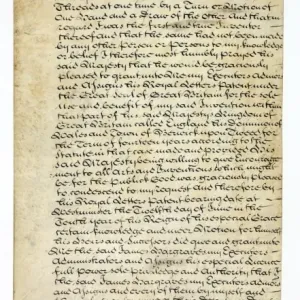 Threads at one time by a Turn or Motion of
One Hand and a Draw of the other and that
I was the first and true Inventor
thereof and that the same had not been made
by any other Person or Persons to my knowledge
or belief I therefore most humbly prayed his
said Majesty that he would be graciously
pleased to grant unto Me my Executors Admors
and Assigns his Royal Letters Patent under
the Great Seal of Great Britain for the sole
Use and benefit of my said Invention within
that part of his said Majestys Kingdom of
Great Britain called England his Dominion of
Wales and Town of Berwick upon Tweed for
the Term of fourteen years according to the
Statute in that case made and provided
said Majesty being willing to give Encourage
ment to all Arts and Inventions which may
be for the Public Good was graciously pleased
to condescend to my request and therefore by
his Royal Letters Patent bearing date at
Westminster the Twelfth day of June in the
Tenth year of his Reign of his especial Grace
certain knowledge and meer Motion for himself
his Heirs and Successors did give and grant unto
Me the said James Hargraves my Executors
Administrators and Assigns his especial licence
full Power sole priviledge and Authority that I
the said James Hargraves my Executors Admors
and Assigns and every of them by myself and